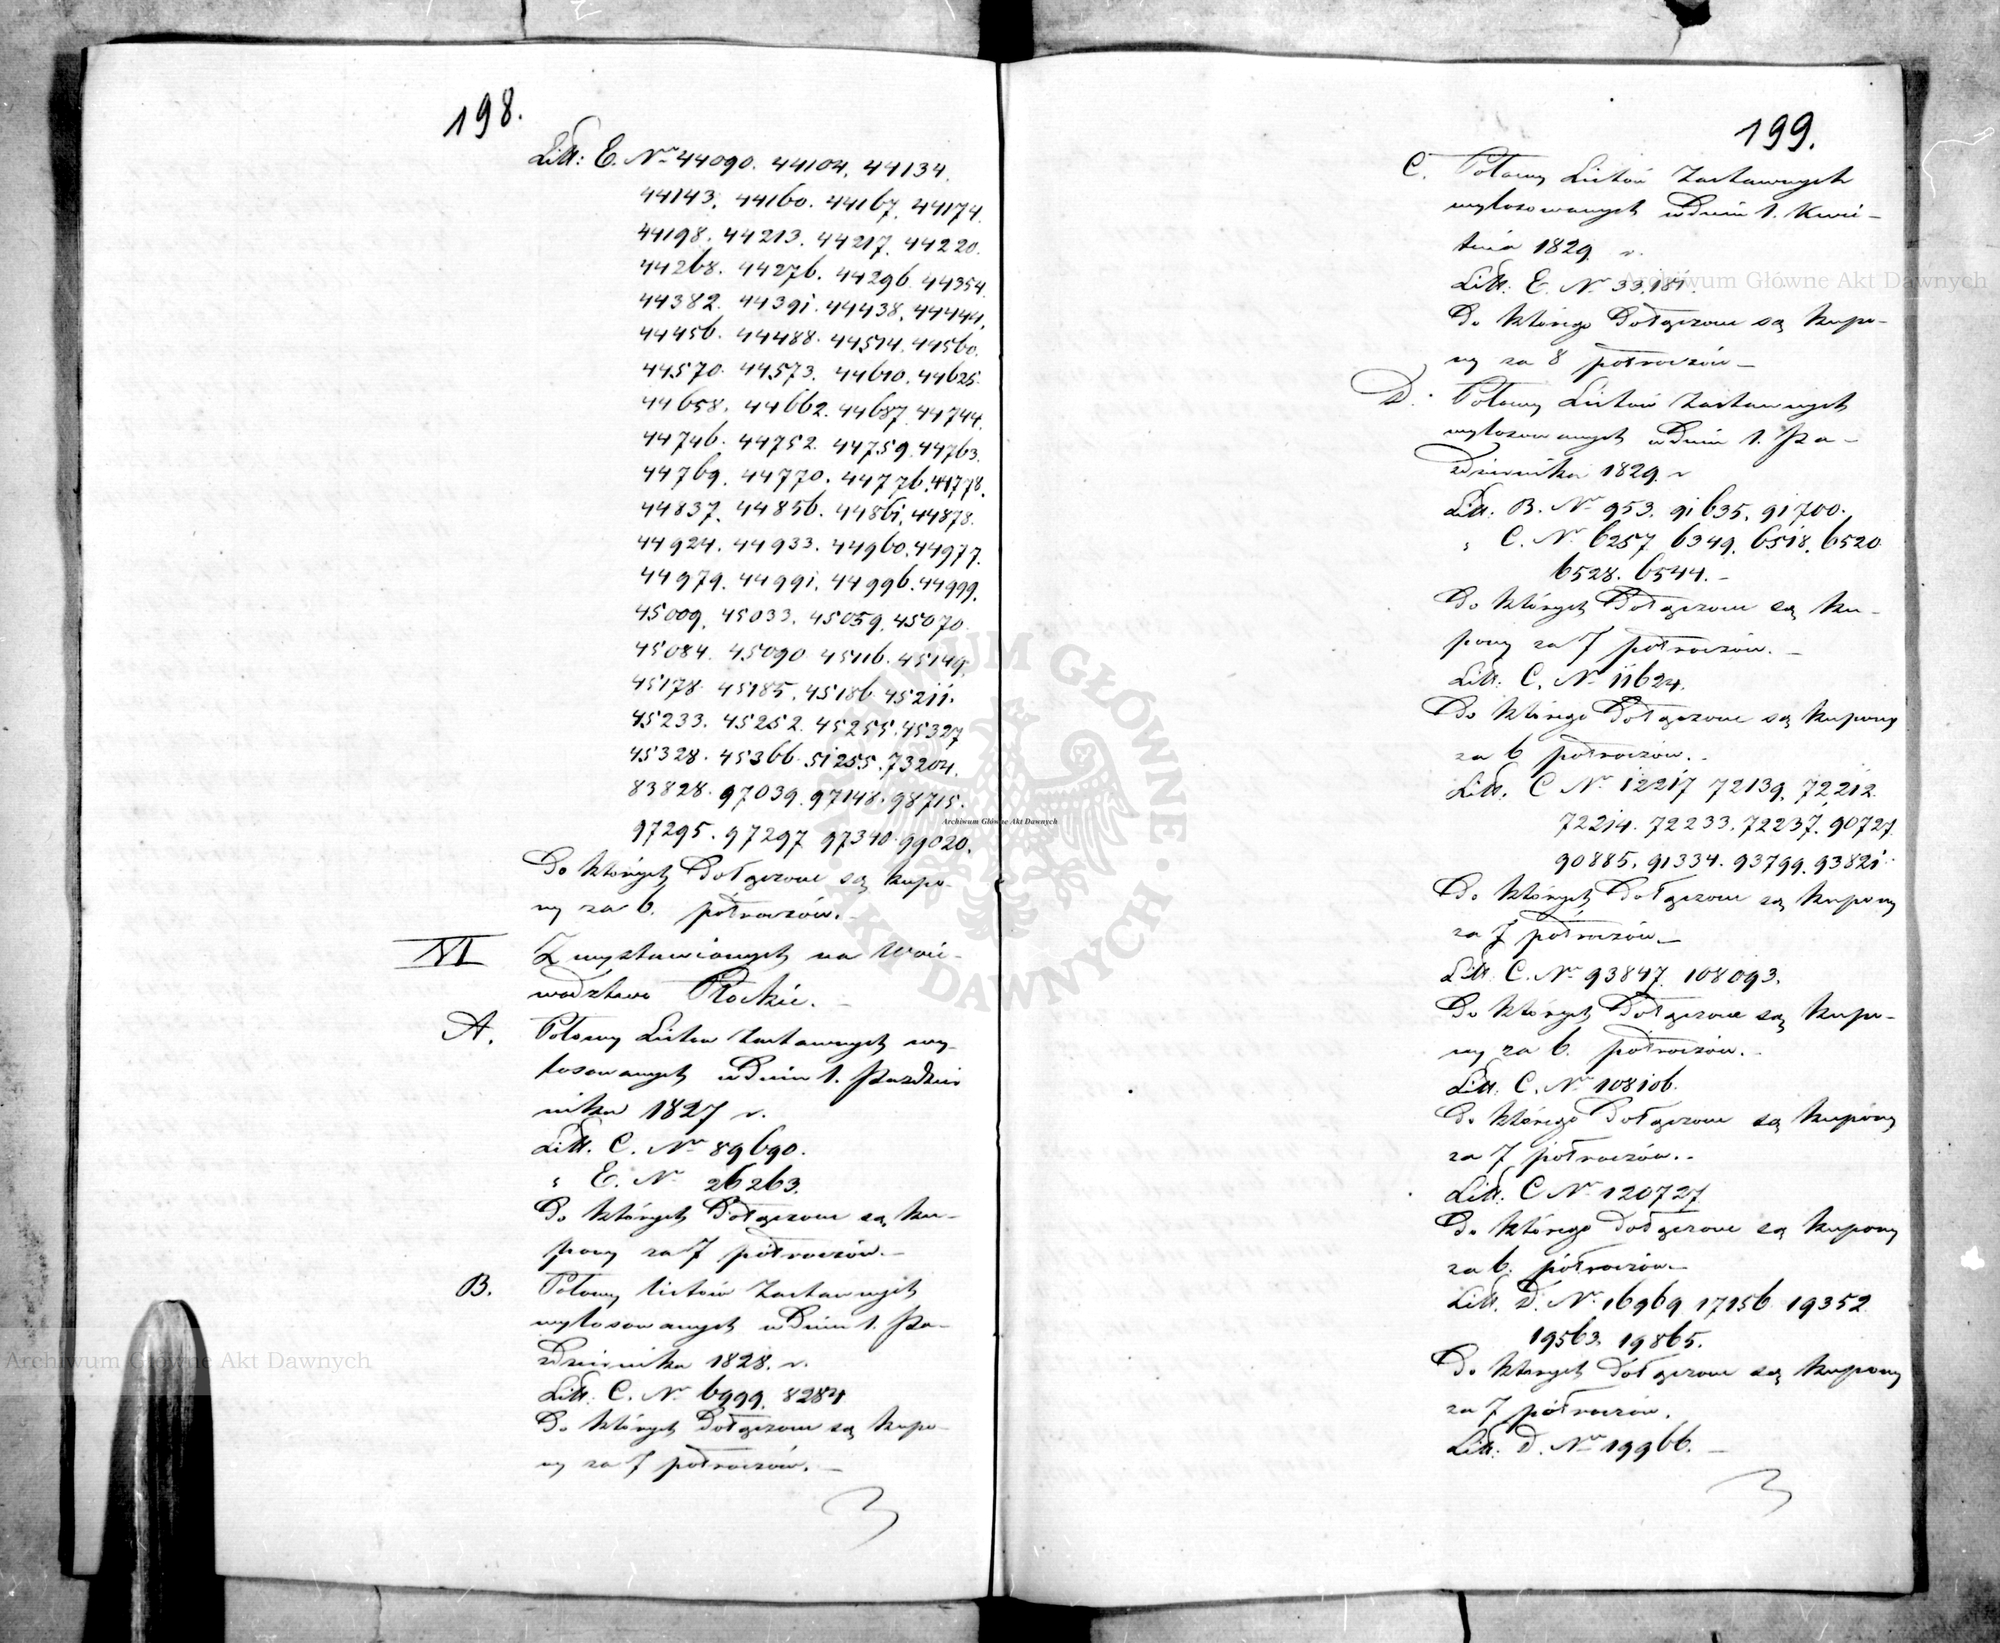 198.
Litt: E. Nr 44090. 44104. 44134.
44143. 44160. 44167. 44174.
44198. 44213. 44217. 44220.
44268. 44276. 44296. 44354.
44382. 44391. 44438. 44444.
44456. 44488. 44514. 44560.
44570. 44573. 44610. 44625.
44658. 44662. 44687. 44744.
44746. 44752. 44759. 44763.
44769. 44770. 44776. 44778.
44837. 44856. 44861. 44878.
44924. 44933. 44960. 44977.
44979. 44991. 44996. 44999.
45009. 45033. 45059. 45070.
45084. 45090. 45116. 45149.
45178. 45185. 45186. 45211.
45233. 45252. 45255. 45327
45328. 45366. 51255. 73204.
83828. 97039. 97148. 98715.
97295. 97297. 97340. 99020.
Do których dołączone są kupo-
ny za 6. półroczów. –
VI Z wystawionych na Woie-
wództwo Płockie. –
A. Połowy Listów Zastawnych wy-
losowanych w dniu 1. Paździer
nika 1827 r.
Litt. C. Nr 89690.
" E. Nr 26263.
Do których dołączone są ku-
pony za 7 półroczów. –
B. Połowy listów Zastawnych
wylosowanych w dniu 1. Pa-
ździernika 1828. r.
Litt. C. Nr 6999. 8284
Do których dołączone są kupo-
ny za 7 półroczów. –
199.
C. Połowy Listów Zastawnych
wylosowanych w dniu 1. Kwie-
tnia 1829 r.
Litt: E. Nr 33,181.
Do którego dołączone są kupo-
ny za 8 półroczów –
D. Połowy Listów Zastawnych
wylosowanych w dniu 1. Pa-
ździernika 1829. r
Litt. B. Nr 953. 91635. 91700.
" C. Nr 6257 6349. 6518. 6520
6528. 6544. –
Do których dołączone są ku-
pony za 7 półroczów. –
Litt. C. Nr 11624.
Do którego dołączone są kupony
za 6 półroczów. –
Litt. C Nr 12217 72139. 72212.
72214. 72233. 72237. 90727.
90885. 91334. 93799. 93821.
Do których dołączone są kupony
za 7 półroczów –
Litt. C. Nr 93847. 108093.
Do których dołączone są kupo-
ny za 6. półroczów. –
Litt. C. Nr 108106.
Do którego dołączone są kupony
za 7 półroczów. –
Litt. C Nr 120727
Do którego dołączone są kupony
za 6. półroczów –
Litt. D. Nr 16969 17156 19352
19563. 19865.
Do których dołączone są kupony
za 7 półroczów.
Litt. D. Nr 19966. –
Archiwum Główne Akt Dawnych
Archiwum Główne Akt Dawnych
Archiwum Główne Akt Dawnych
ARCHIWUM GŁÓWNE · AKT DAWNYCH ·